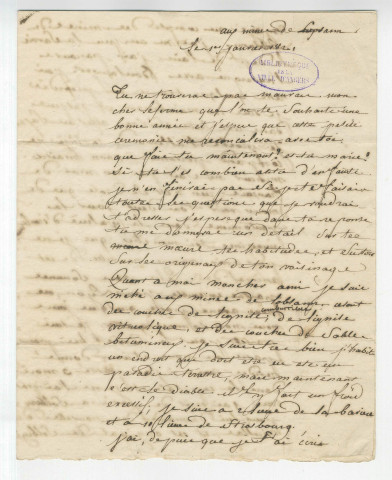 aux mines de Lobsann
le 1er janvier 182
BIBLIOTHEQUE
VILLE D'ANGERS
Tu ne trouveras pas mauvais mon
cher que l'on te souhaite une
bonne année et j'espère que cette petite
ceremonie me reconciliera avec toi
que fais tu maintenant? es tu marié?
Si tu l'es combien as tu d'enfants
je n'en finirai pas si je te faisais
toutes les questions que je voudrais
t'adresser j'espère que dans ta reponse
tu me donneras un détail sur tes
mœurs tes habitudes, et surtout
sur les de ton voisinage
Quant a moi mon cher ami je suis
aux mines de Lobsann, ayant
des couches de lignite, de lignite
et des couches de sable
bitumineux. je suis très bien j'habite
un endroit qui doit être un
paradis terrestre, mais maintenant
c'est le diable il y fait un froid
excessif, je suis a lieues de la baviere
et a 10 lieues de strasbourg.
j'ai, depuis que je t'ai écris